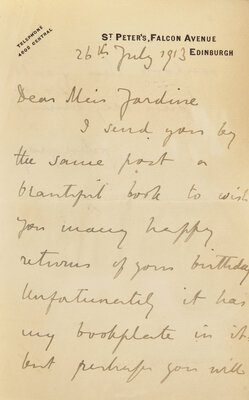 TELEPHONE
4205 CENTRAL
ST PETER'S, FALCON AVENUE
EDINBURGH
26th July 1913
Dear Miss Jardine
I send you by
the same post a
beautiful book to wish
you many happy
returns of your birthday
Unfortunately it has
my bookplate in it
but perhaps you will